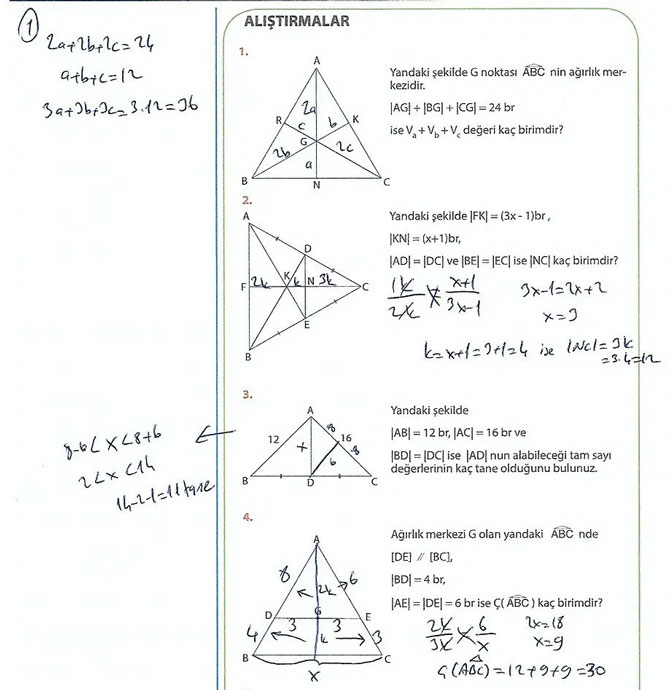 1
2a+2b+2c=24
a+b+c=12
3a+3b+3c=3.12=36
ALIŞTIRMALAR
1.
A
2a
R
c
b
K
G
2b
2c
a
B
N
C
Yandaki şekilde G noktası ABC nin ağırlık mer-
kezidir.
|AG| + |BG| + |CG| = 24 br
ise Va + Vb + Vc değeri kaç birimdir?
2.
A
D
F
2k
K
k
N
3k
C
E
B
Yandaki şekilde |FK| = (3x - 1)br ,
|KN| = (x+1)br,
|AD| = |DC| ve |BE| = |EC| ise |NC| kaç birimdir?
1k/2k x+1/3x-1
3x-1=2x+2
x=3
k=x+1=3+1=4 ise |NC|=3k
=3.4=12
3.
A
12
x
8
16
8
6
B
D
C
Yandaki şekilde
|AB| = 12 br, |AC| = 16 br ve
|BD| = |DC| ise |AD| nun alabileceği tam sayı
değerlerinin kaç tane olduğunu bulunuz.
8-6<x<8+6
2<x<14
14-2-1=11 tane
4.
A
8
2k
6
D
G
E
3
3
4
k
3
B
C
x
Ağırlık merkezi G olan yandaki ABC nde
[DE] // [BC],
|BD| = 4 br,
|AE| = |DE| = 6 br ise Ç( ABC ) kaç birimdir?
2k/3k 6/x
2x=18
x=9
Ç(ABC)=12+9+9=30